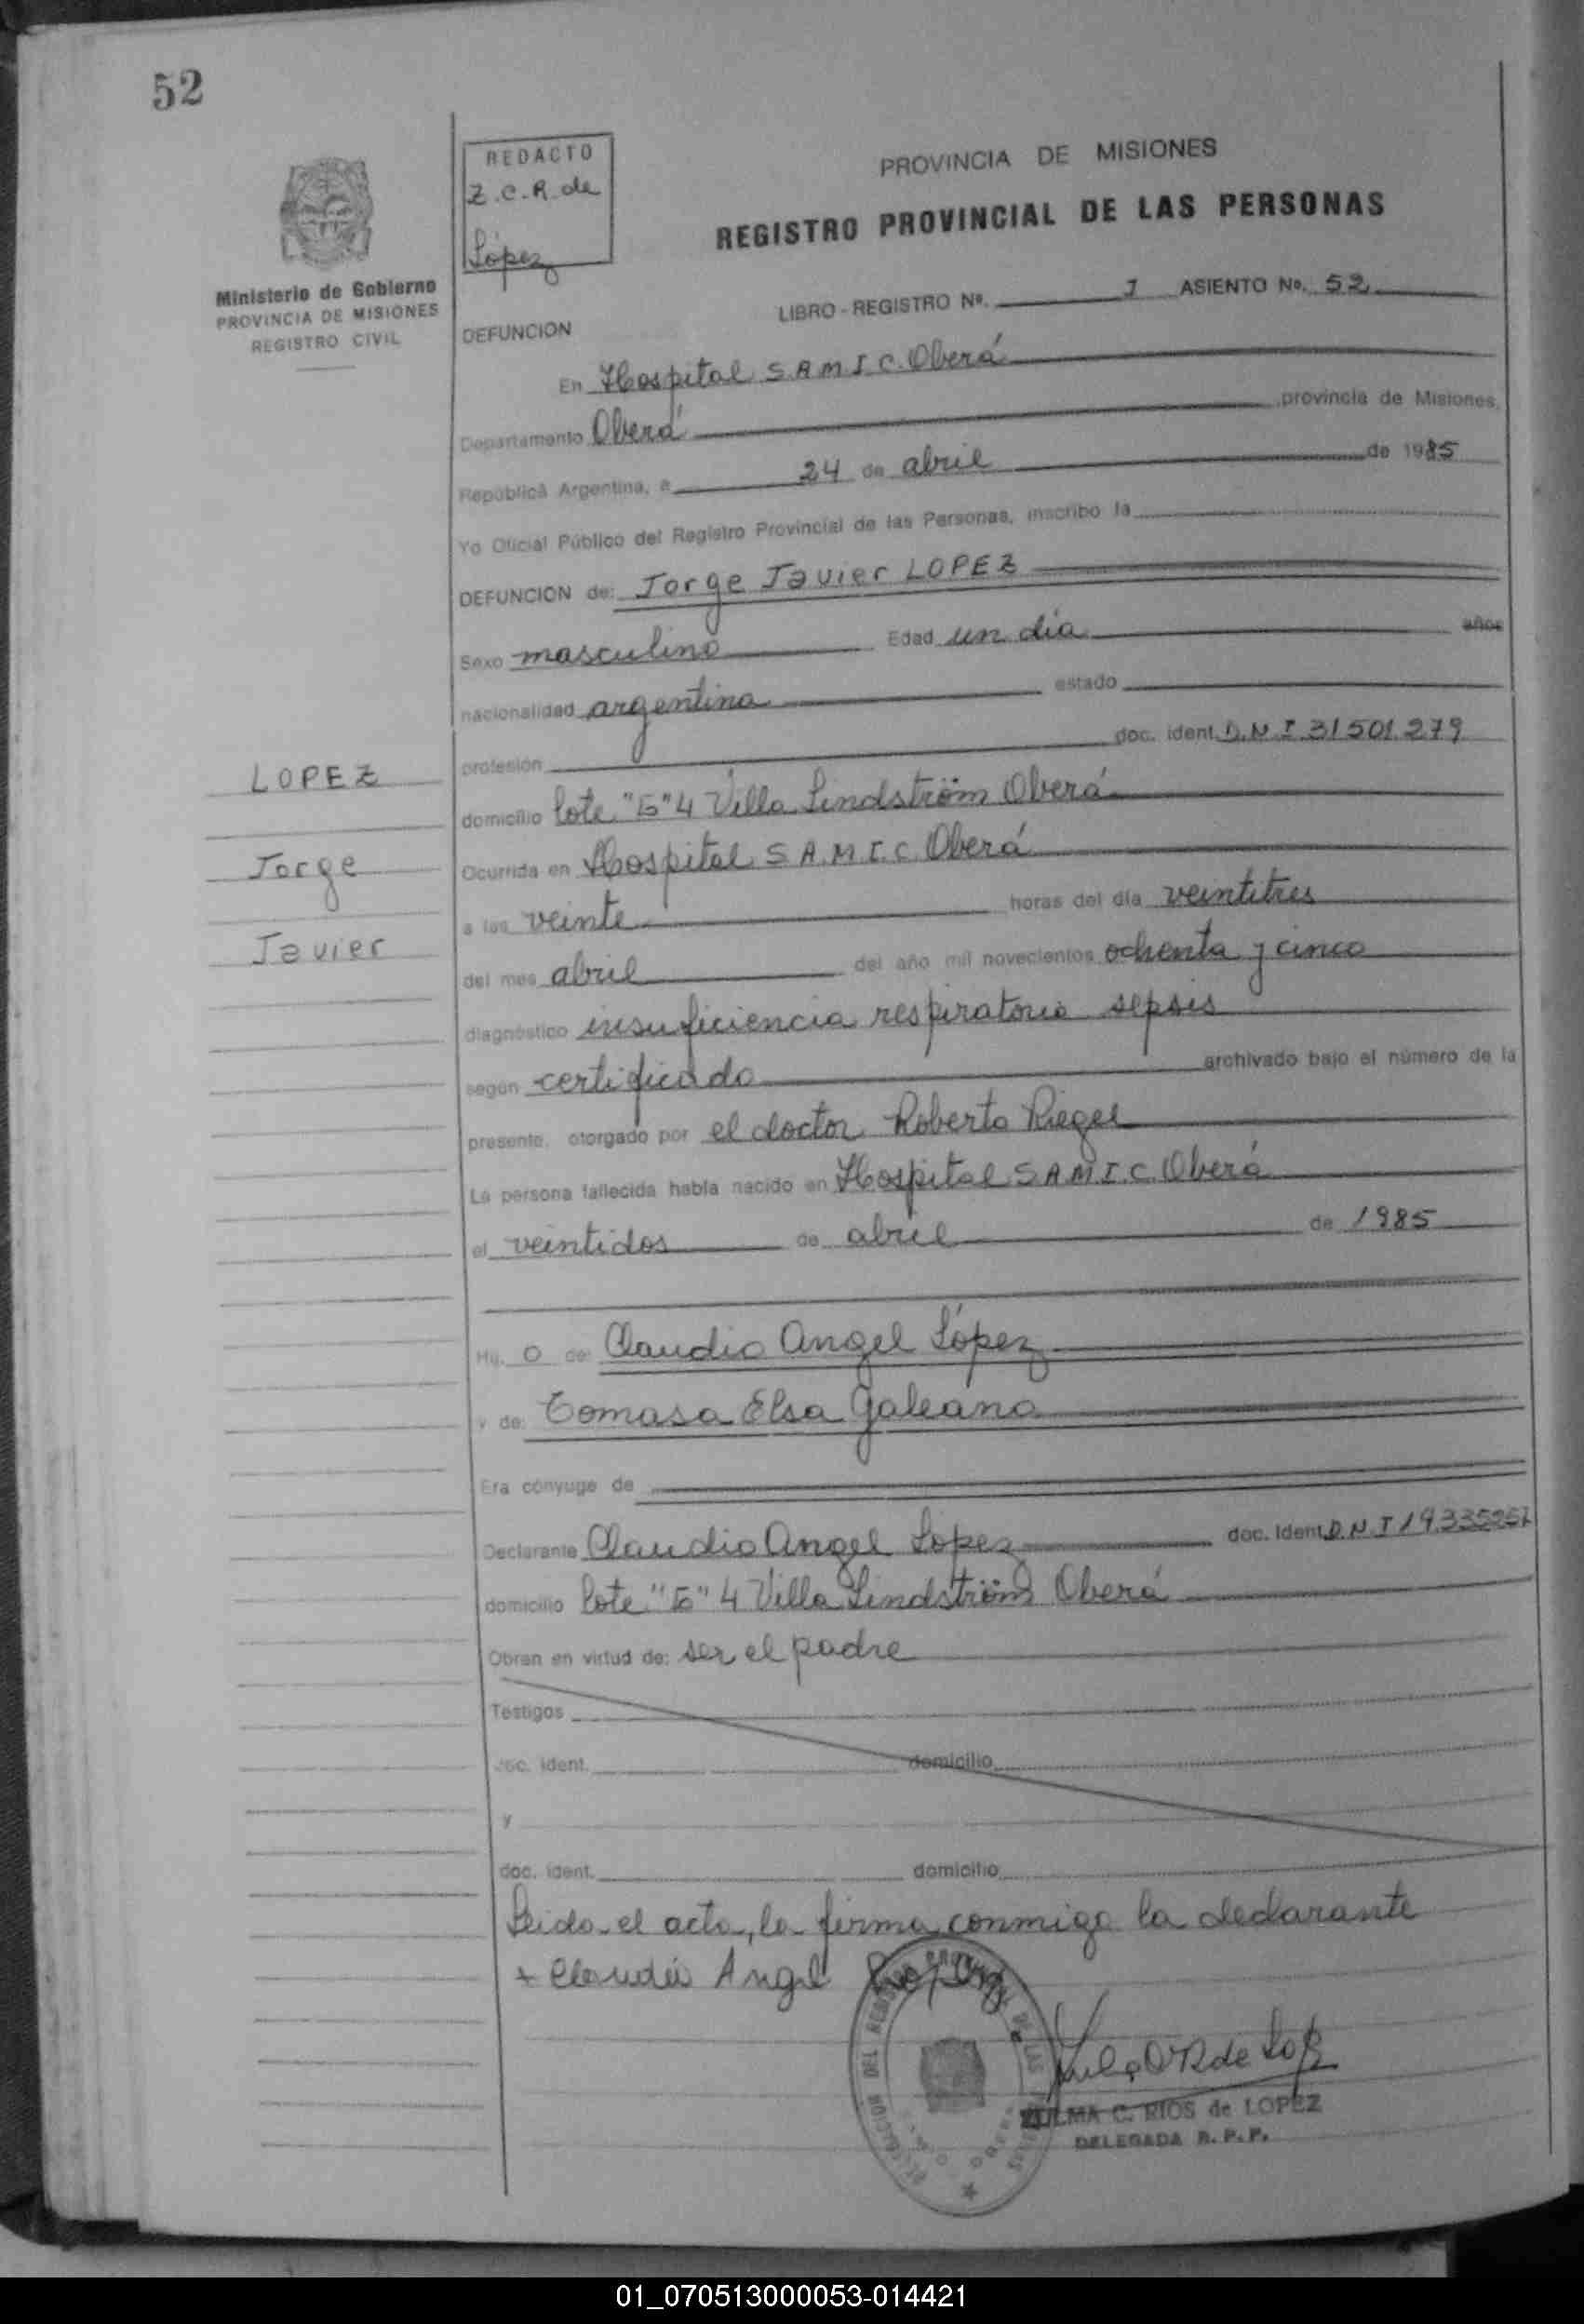 52
REDACTO
Z.C.R. de
López
Ministerio de Gobierno
PROVINCIA DE MISIONES
REGISTRO CIVIL
PROVINCIA DE MISIONES
REGISTRO PROVINCIAL DE LAS PERSONAS
LIBRO - REGISTRO Nº. 1 ASIENTO No. 52
DEFUNCION
En Hospital S.A.M.I.C. Oberá
Departamento Oberá provincia de Misiones,
República Argentina, a 24 de abril de 1985
Yo Oficial Público del Registro Provincial de las Personas, inscribo la
DEFUNCION de: Jorge Javier LOPEZ
Sexo masculino Edad un día años
nacionalidad argentina estado
profesión doc. ident. D.N.I 31501.279
LOPEZ
Jorge
Javier
domicilio lote "E" 4 Villa Lindström Oberá
Ocurrida en Hospital S.A.M.I.C. Oberá
a las veinte horas del día veintitres
del mes abril del año mil novecientos ochenta y cinco
diagnóstico insuficiencia respiratoria sepsis
según certificado archivado bajo el número de la
presente, otorgado por el doctor Roberto Riegel
La persona fallecida había nacido en Hospital S.A.M.I.C. Oberá
el veintidos de abril de 1985
Hij. o de: Claudio Angel López
y de: Tomasa Elsa Galeano
Era cónyuge de
Declarante Claudio Angel Lopez doc. Ident. D.N.I
domicilio lote "E" 4 Villa Lindström Oberá
Obran en virtud de: ser el padre
Testigos
doc. ident. domicilio
y
doc. ident. domicilio
Leida el acta, la firma conmigo la declarante
+ Claudio Angel
ZULMA C. RIOS de LOPEZ
DELEGADA R.P.P.
01_070513000053-014421